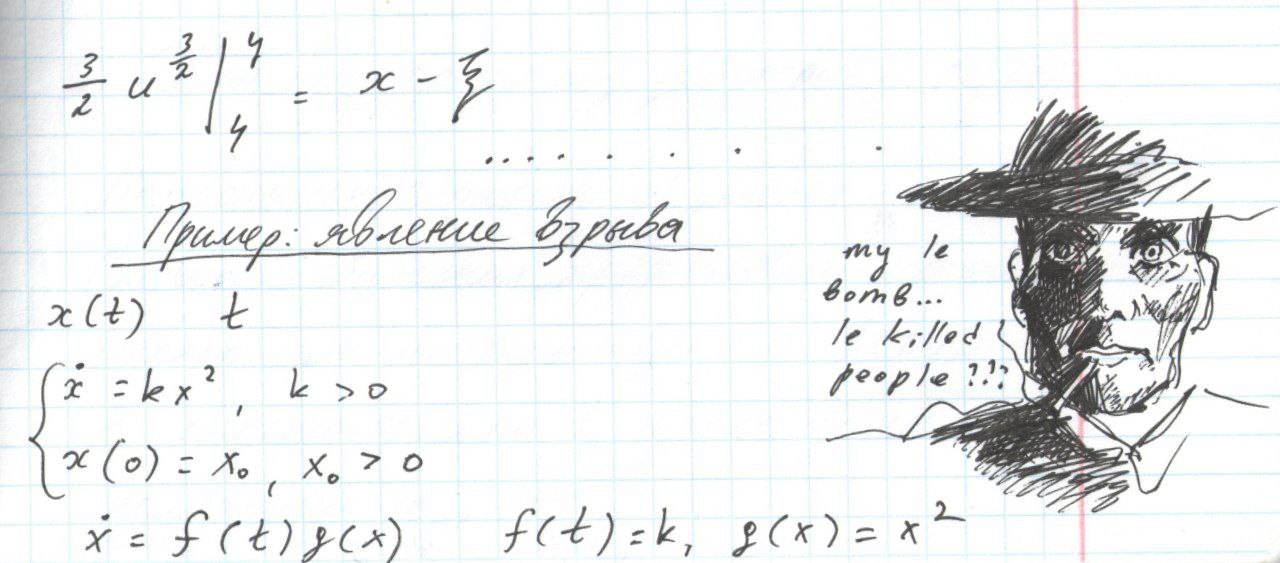 3/2 u^{3/2} |_y^y = x - ξ
Пример: явление взрыва
x(t) t
{ ẋ = kx², k > 0
x(0) = x₀, x₀ > 0
ẋ = f(t)g(x) f(t)=k, g(x) = x²
my le
bomb...
le killed
people ???